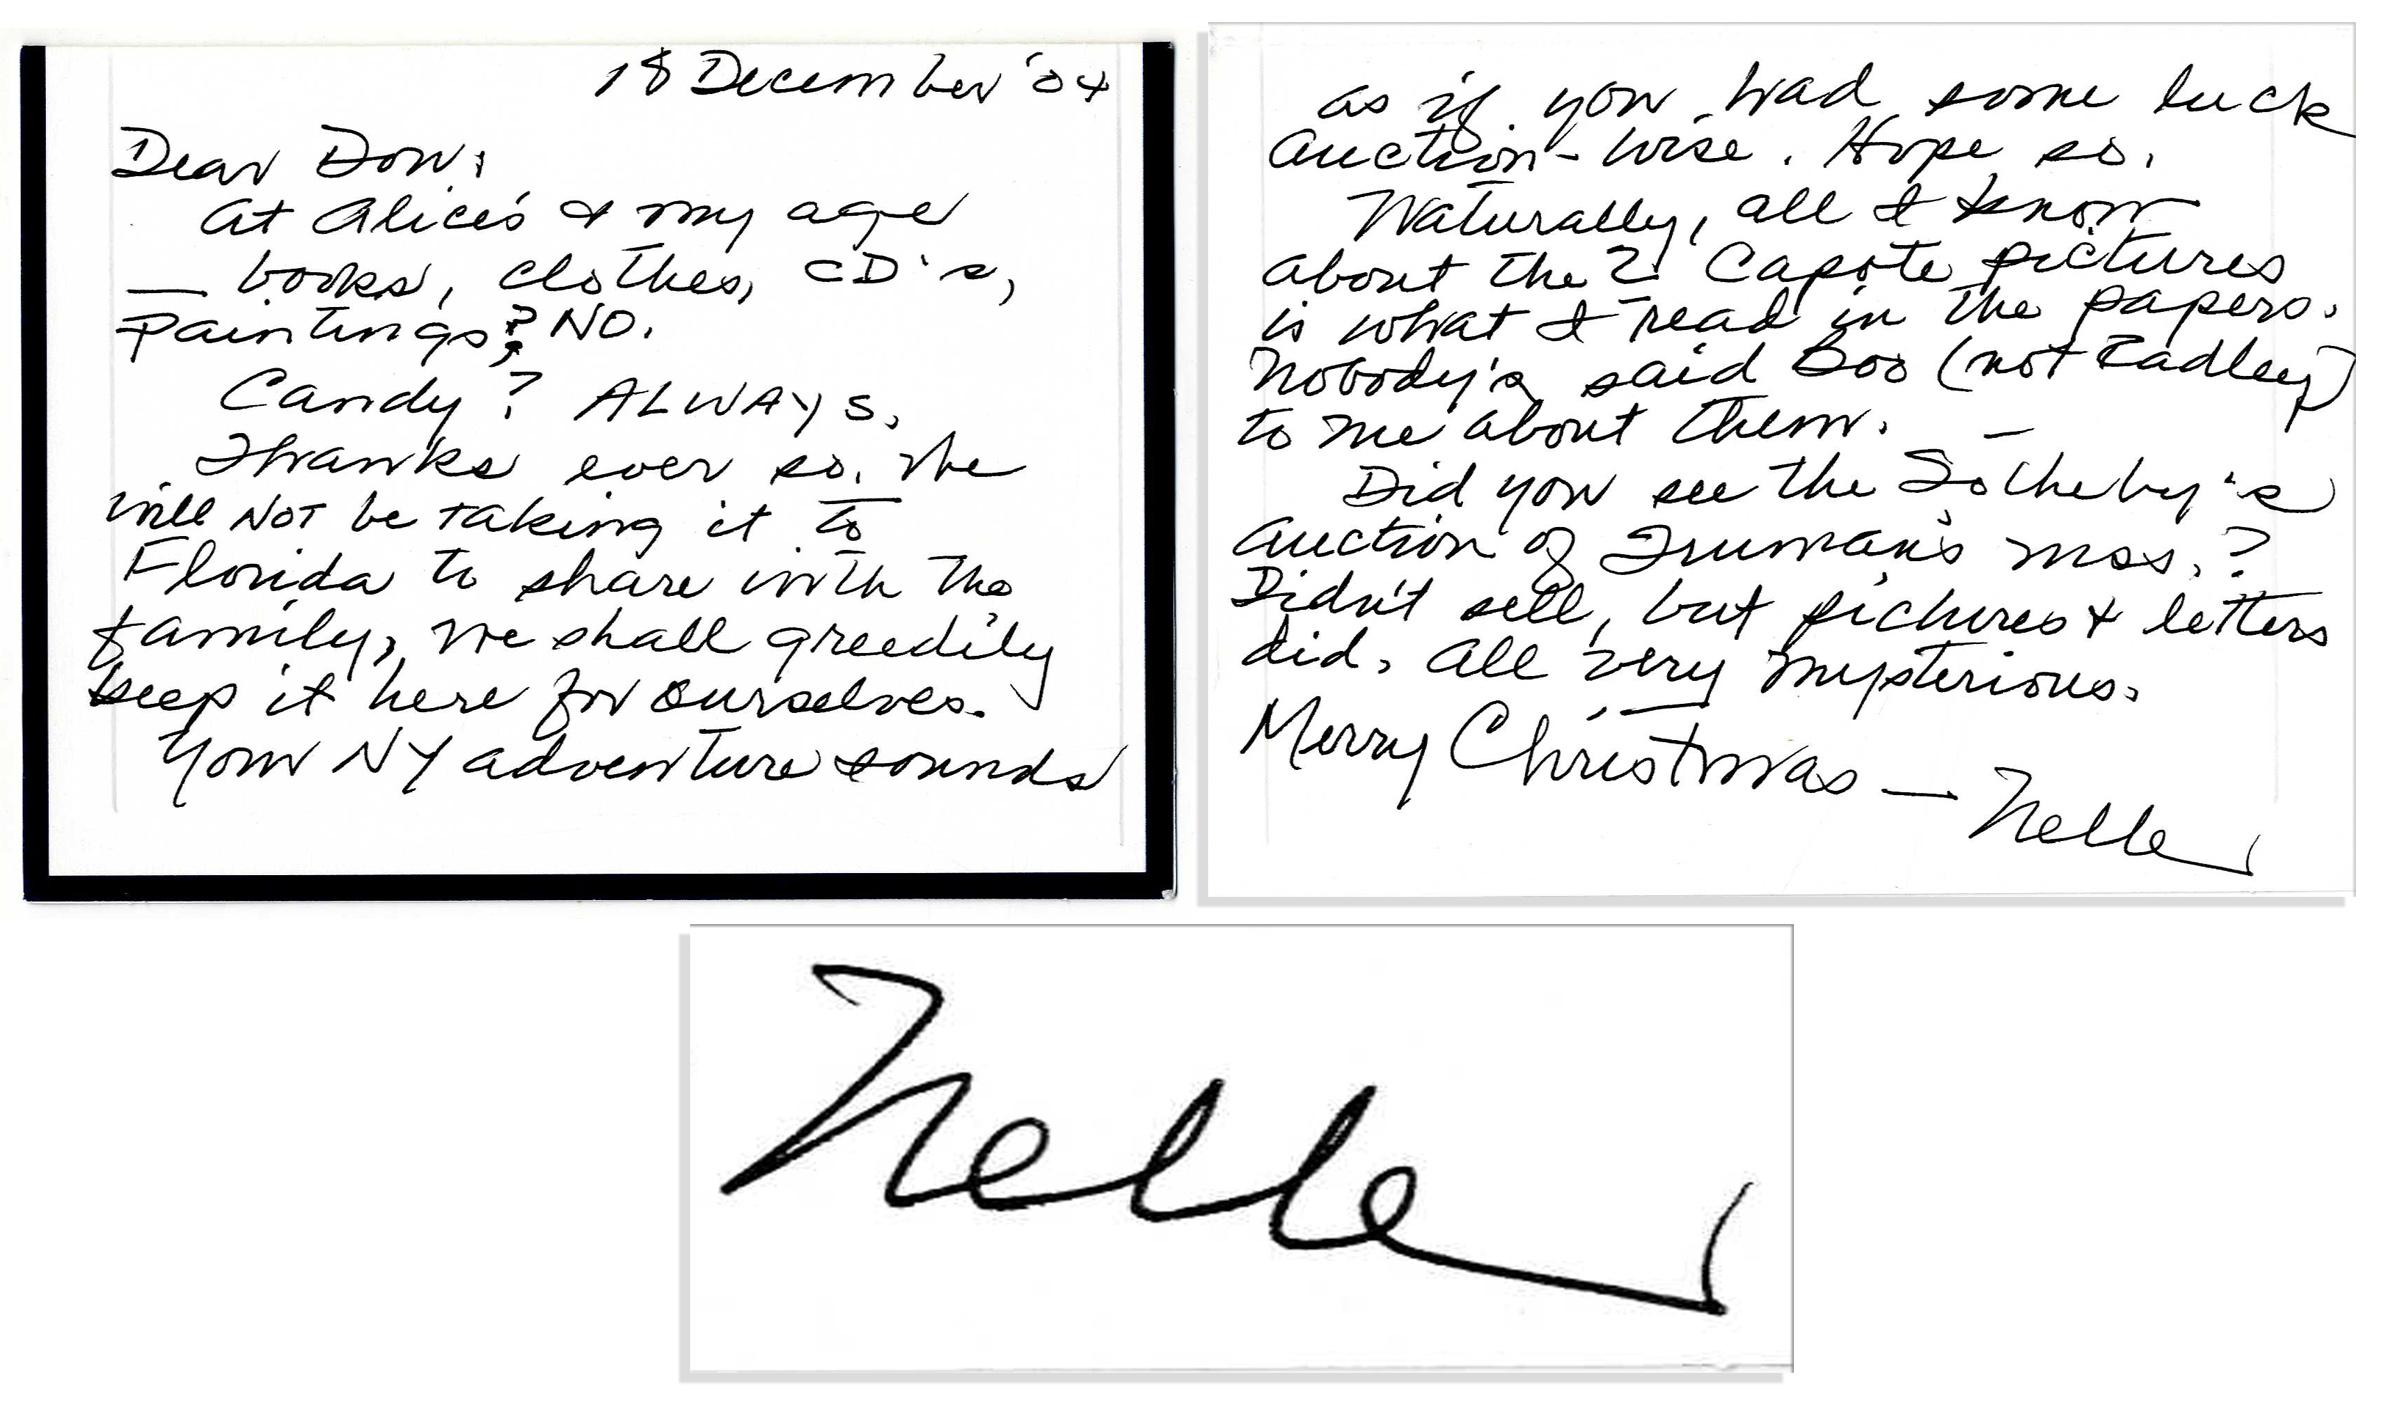 18 December '04
Dear Don:
At Alice's & my age
— books, clothes, CD's,
paintings? NO.
Candy? ALWAYS.
Thanks ever so. We
will NOT be taking it to
Florida to share with the
family, we shall greedily
keep it here for ourselves.
Your NY adventure sounds
as if you had some luck
auction-wise. Hope so.
Naturally, all I know
about the 2 Capote pictures
is what I read in the papers.
Nobody's said Boo (not Radley)
to me about them.
Did you see the Sotheby's
auction of Truman's mss.?
Didn't sell, but pictures & letters
did. All very mysterious.
Merry Christmas —
Nelle
Nelle